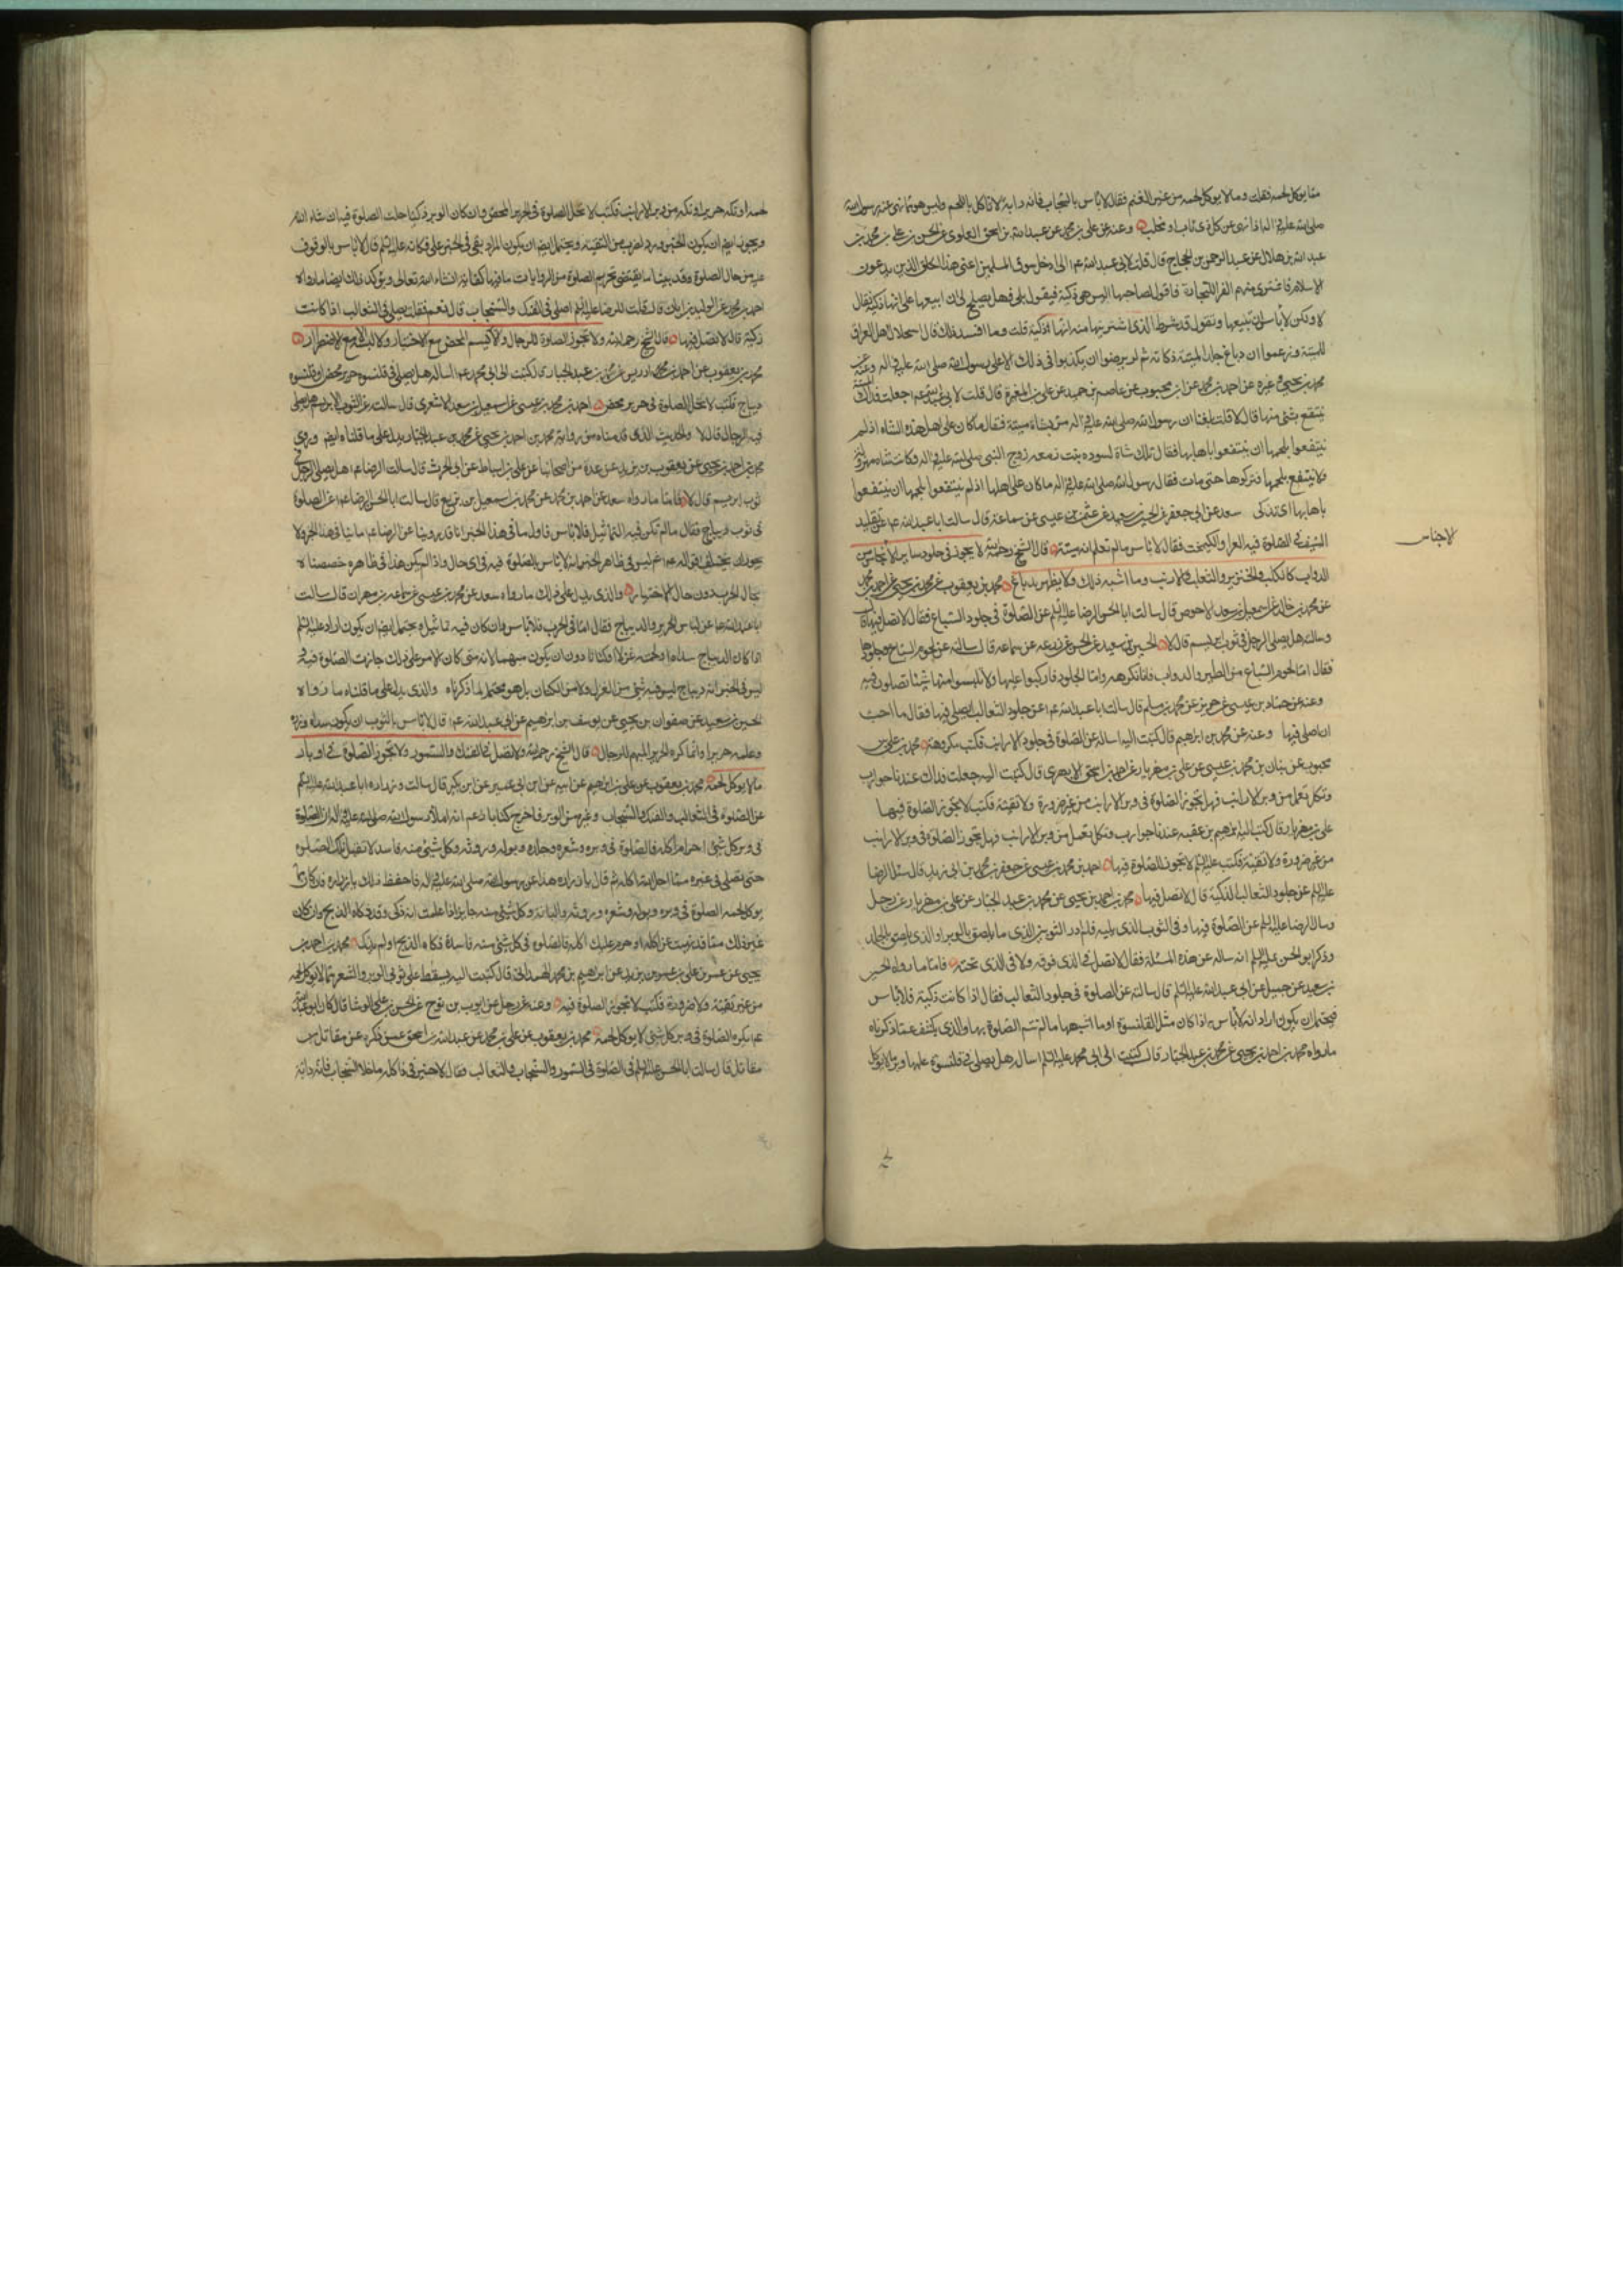 مما يوكل لحمه فقلت وما لا يوكل لحمه من غير الغنم فقال لا باس بالسنجاب فانه دابة لا تاكل باللحم وليس هو مما نهى عنه رسول الله
صلى الله عليه واله اذ نهى عن كل ذى ناب ومخلب وعنه عن على بن محمد عن عبد الله بن اسحق العلوى عن الحسن بن على عن محمد بن
عبد الله بن هلال عن عبد الرحمن بن الحجاج قال قلت لابى عبد الله عم انى ادخل سوق المسلمين اعنى هذا الخلق الذين يدعون
الاسلام فاشترى منهم الفراء للتجارة فاقول لصاحبها اليس هى ذكية فيقول بلى فهل يصلح لى ان ابيعها على انها ذكية فقال
لا ولكن لا باس ان تبيعها وتقول قد شرط الذى اشتريتها منه انها ذكية قلت وما افسد ذلك قال استحلال اهل العراق
للميتة وزعموا ان دباغ جلد الميتة ذكاته ثم لم يرضوا ان يكذبوا فى ذلك الا على رسول الله صلى الله عليه واله وعنه عن
محمد بن يحيى وغيره عن احمد بن محمد عن ابن محبوب عن عاصم بن حميد عن على بن المغيرة قال قلت لابى عبد الله عم جعلت فداك الميتة
ينتفع بشئ منها قال لا قلت بلغنا ان رسول الله صلى الله عليه واله مر بشاة ميتة فقال ما كان على اهل هذه الشاة اذ لم
ينتفعوا بلحمها ان ينتفعوا باهابها فقال تلك شاة لسوده بنت زمعه زوج النبى صلى الله عليه واله وكانت شاه مهزولة
لا ينتفع بلحمها فتركوها حتى ماتت فقال رسول الله صلى الله عليه واله ما كان على اهلها اذ لم ينتفعوا بلحمها ان ينتفعوا
باهابها اى تذكى سعد عن ابى جعفر عن الحسين بن سعيد عن عثمن بن عيسى عن سماعة قال سالت ابا عبد الله عم عن تقليد
السيف فى الصلوة فيه الفرا والكيمخت فقال لا باس ما لم تعلم انه ميتة قال الشيخ رحمه الله لا يجوز فى جلود ساير الانجاس من
لاجناس
الدواب كالكلب والخنزير والثعلب والارنب وما اشبه ذلك ولا يطهر بدباغ محمد بن يعقوب عن محمد بن يحيى عن احمد بن محمد
عن محمد بن خالد عن اسمعيل بن سعد الاحوص قال سالت ابا الحسن الرضا عليه السلم عن الصلوة فى جلود السباع فقال لا تصل فيها قال
وسالته هل يصلى الرجل فى ثوب ابريسم قال لا الحسين بن سعيد عن الحسن عن زرعه عن سماعه قال سالته عن لحوم السباع وجلودها
فقال اما لحوم السباع من الطير والدواب فانا نكرهه واما الجلود فاركبوا عليها ولا تلبسوا منها شيئا تصلون فيه
وعنه عن حماد بن عيسى عن حريز عن محمد بن مسلم قال سالت ابا عبد الله عم عن جلود الثعالب ايصلى فيها فقال ما احب
ان اصلى فيها وعنه عن محمد بن ابرهيم قال كتبت اليه اساله عن الصلوة فى جلود الارانب فكتب مكروهة محمد بن على بن
محبوب عن بنان بن محمد بن عيسى عن على بن مهزيار عن احمد بن اسحق الابهرى قال كتبت اليه جعلت فداك عندنا جوارب
وتكك تعمل من وبر الارانب فهل تجوز الصلوة فى وبر الارانب من غير ضرورة ولا تقية فكتب لا تجوز الصلوة فيها
على بن مهزيار قال كتب اليه ابرهيم بن عقبه عندنا جوارب وتكك تعمل من وبر الارانب فهل تجوز الصلوة فى وبر الارانب
من غير ضرورة ولا تقية فكتب عليه السلم لا تجوز الصلوة فيها احمد بن محمد بن عيسى عن جعفر بن محمد بن ابى زيد قال سئل الرضا
عليه السلم عن جلود الثعالب الذكية قال لا تصل فيها محمد بن احمد بن يحيى عن محمد بن عبد الجبار عن على بن مهزيار عن رجل
وسال الرضا عليه السلم عن الصلوة فيها وفى الثوب الذى يليه فلم ادر الثوبين الذى ما يلصق بالوبر او الذى يلصق بالجلد
وذكر ابو الحسن عليه السلم انه ساله عن هذه المسئلة فقال لا تصل فى الذى فوقه ولا فى الذى تحته فاما ما رواه الحسين
بن سعيد عن جميل عن ابى عبد الله عليه السلم قال سالته عن الصلوة فى جلود الثعالب فقال اذا كانت ذكية فلا باس
فيحتمل ان يكون اراد انه لا باس به اذا كان مثل القلنسوة او ما اشبهها مما لم تتم الصلوة بها والذى يكشف عما ذكرناه
ما رواه محمد بن احمد بن يحيى عن محمد بن عبد الجبار قال كتبت الى ابى محمد عليه السلم اساله هل يصلى فى قلنسوة عليها وبر ما لا يوكل
لحمه او تكه حرير او تكه من وبر الارانب فكتب لا تحل الصلوة فى الحرير المحض وان كان الوبر ذكيا حلت الصلوة فيه ان شاء الله
ويجوز ايضا ان يكون الخبر ورد لضرب من التقية ويحتمل ايضا ان يكون المراد بفى فى الخبر على فكانه عليه السلم قال لا باس بالوقوف
عليه من حال الصلوة وقد بينا ما يقتضى تحريم الصلوة من الروايات ما فيها كفاية ان شاء الله تعالى ويؤكد ذلك ايضا ما رواه
احمد بن محمد عن الوليد بن ابان قال قلت للرضا عليه السلم اصلى فى الفنك والسنجاب قال نعم فقلت يصلى فى الثعالب اذا كانت
ذكية قال لا تصل فيها قال الشيخ رحمه الله ولا تجوز الصلوة للرجال فى الابريسم المحض مع الاختيار ولا لبسه الا مع الاضطرار
محمد بن يعقوب عن احمد بن ادريس عن محمد بن عبد الجبار قال كتبت الى ابى محمد عم اساله هل يصلى فى قلنسوه حرير محض او قلنسوه
ديباج فكتب لا تحل الصلوة فى حرير محض احمد بن محمد بن عيسى عن اسمعيل بن سعد الاشعرى قال سالت عن الثوب الابريسم هل يصلى
فيه الرجال قال لا والحديث الذى قدمناه من رواية محمد بن احمد بن يحيى عن محمد بن عبد الجبار يدل على ما قلناه ايضا وروى
محمد بن احمد بن يحيى عن يعقوب بن يزيد عن عدة من اصحابنا عن على بن اسباط عن ابى الحرث قال سالت الرضا عم هل يصلى الرجل فى
ثوب ابريسم قال لا فاما ما رواه سعد عن احمد بن محمد عن محمد بن اسمعيل بن بزيع قال سالت ابا الحسن الرضا عم عن الصلوة
فى ثوب ديباج فقال ما لم تكن فيه التماثيل فلا باس
بحال الحرب دون حال الاختيار والذى يدل على ذلك ما رواه سعد عن محمد بن عيسى عن سماعه بن مهران قال سالت
ابا عبد الله عم عن لباس الحرير والديباج فقال اما فى الحرب فلا باس وان كان فيه تماثيل ويحتمل ايضا ان يكون اراد عليه السلم
اذا كان الديباج سداه او لحمته غزلا او كتانا دون ان يكون مبهما لانه متى كان الامر على ذلك جازت الصلوة فيه
ليس فى الخبر انه ديباج ليس فيه شئ من الغزل ولا من الكتان بل هو محتمل لما ذكرناه والذى يدل على ما قلناه ما رواه
الحسين بن سعيد عن صفوان بن يحيى عن يوسف بن ابرهيم عن ابى عبد الله عم قال لا باس بالثوب ان يكون سداه وزره
وعلمه حريرا وانما كره الحرير المبهم للرجال قال الشيخ رحمه الله ولا تصل فى الفنك والسمور ولا تجوز الصلوة فى اوبار
ما لا يوكل لحمه محمد بن يعقوب عن على بن ابرهيم عن ابيه عن ابن ابى عمير عن ابن بكير قال سالت زراره ابا عبد الله عليه السلم
عن الصلوه فى الثعالب والفنك والسنجاب وغيره من الوبر فاخرج كتابا زعم انه املاء رسول الله صلى الله عليه واله ان الصلوة
فى وبر كل شئ احرام اكله فالصلوة فى وبره وشعره وجلده وبوله وروثه وكل شئ منه فاسد لا تقبل تلك الصلوه
حتى تصلى فى غيره مما احل الله اكله ثم قال يا زراره هذا عن رسول الله صلى الله عليه واله فاحفظ ذلك يا زراره فان كان مما
يوكل لحمه الصلوة فى وبره وبوله وشعره وروثه والبانه وكل شئ منه جايز اذا علمت انه ذكى وقد ذكاه الذبح وان كان
غير ذلك مما قد نهيت عن اكله او حرم عليك اكله فالصلوه فى كل شئ منه فاسدة ذكاه الذبح او لم يذكه محمد بن احمد بن
يحيى عن عمر بن على بن عمر بن يزيد عن ابرهيم بن محمد الهمدانى قال كتبت اليه يسقط على ثوبى الوبر والشعر مما لا يوكل لحمه
من غير تقية ولا ضرورة فكتب لا تجوز الصلوة فيه وعنه عن رجل عن ايوب بن نوح عن الحسن بن على الوشا قال كان ابو عبد الله
عم يكره الصلوة فى وبر كل شئ لا يوكل لحمه محمد بن يعقوب عن على بن محمد عن عبد الله بن اسحق عمن ذكره عن مقاتل بن
مقاتل قال سالت ابا الحسن عليه السلم فى الصلوة فى السمور والسنجاب والثعالب فقال لا خير فى ذا كله ما خلا السنجاب فانه دابة